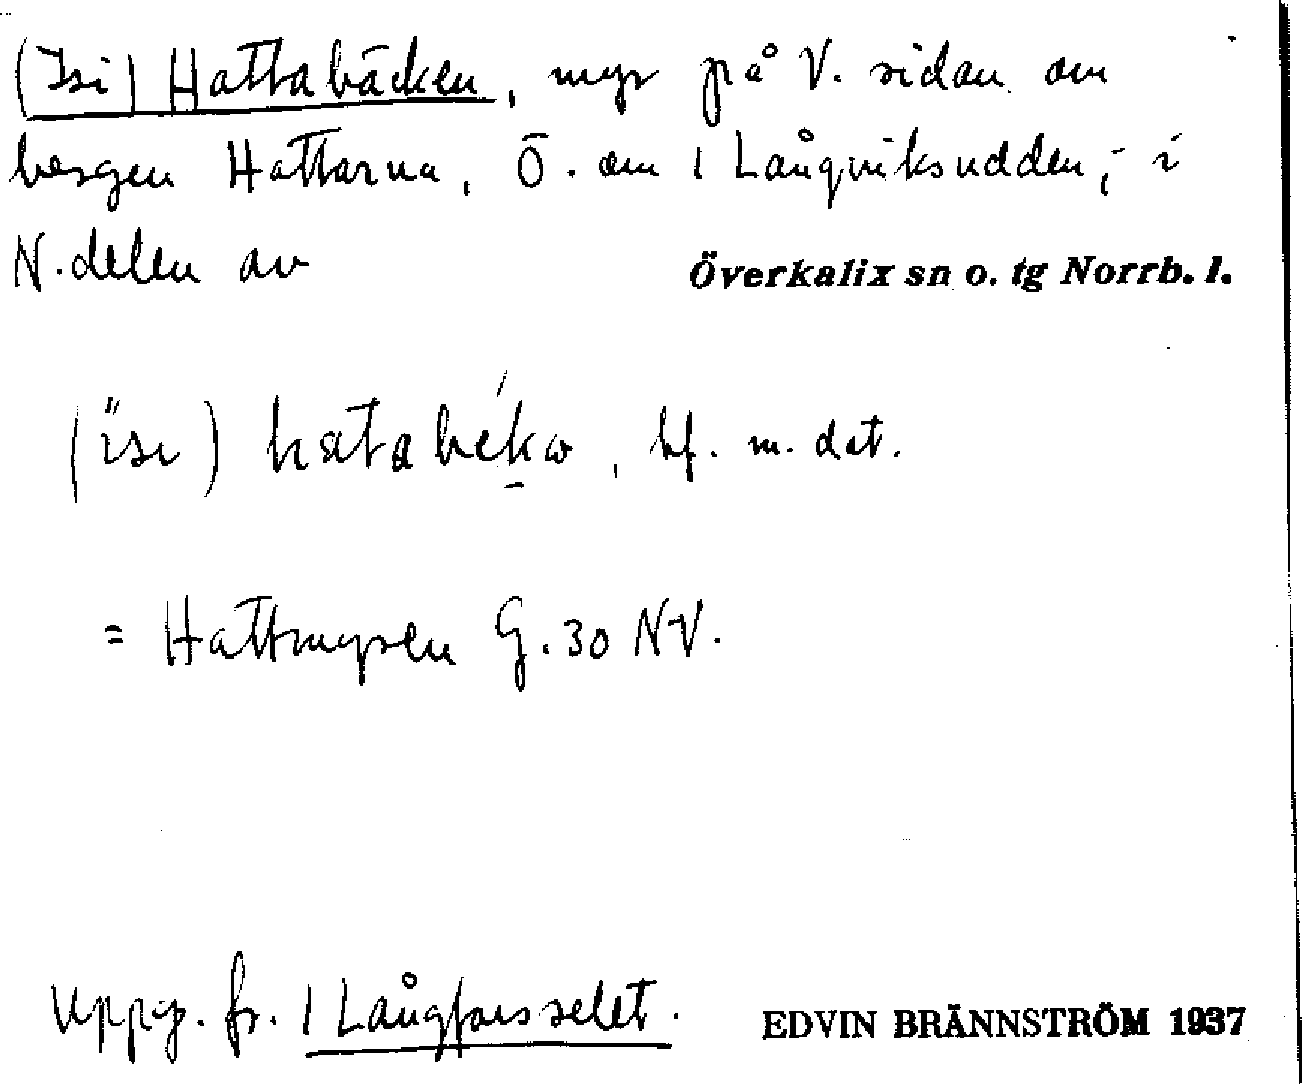 (Isi) Hattabäcken, myr på V. sidan om
bergen Hattarna, Ö. om / Långviksudden, - i
N. delen av Överkalix sn o. tg Norrb. l.
bf. m. dat.
= Hattmyren G. 30 NV.
Uppg. fr. / Långforsselet.
EDVIN BRÄNNSTRÖM 1937